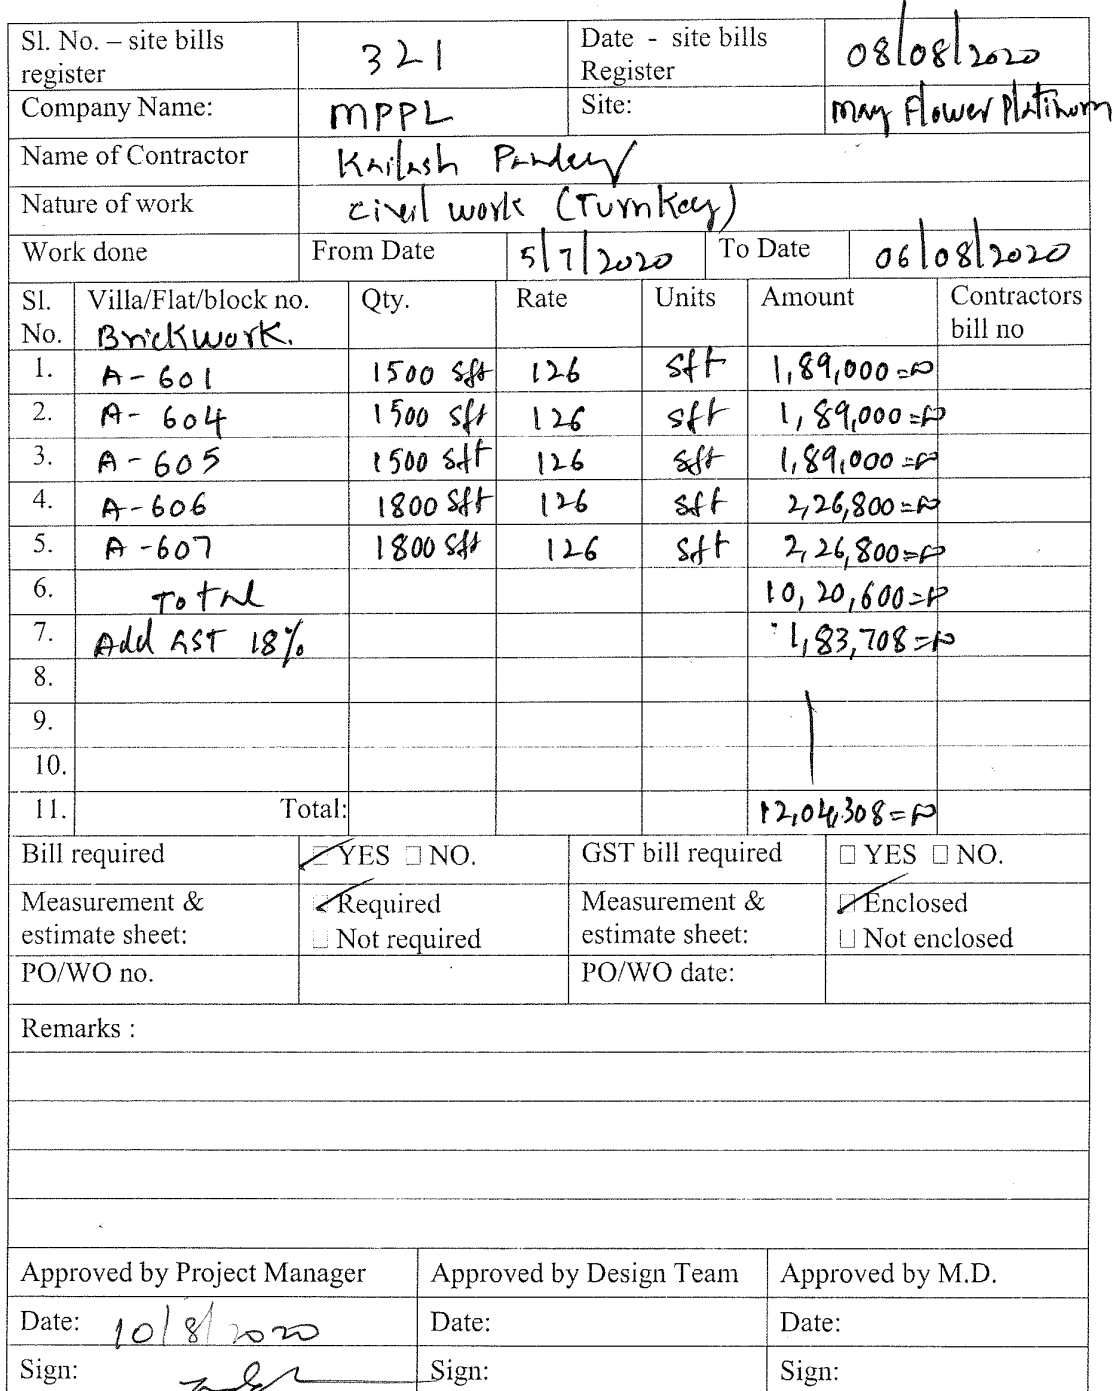 Sl. No. – site bills register 321 Date - site bills Register 08/08/2020
Company Name: MPPL Site: May Flower Platinum
Name of Contractor Kailash Pandey
Nature of work civil work (Turnkey)
Work done From Date 5/7/2020 To Date 06/08/2020
Sl. No. Villa/Flat/block no. Brickwork. Qty. Rate Units Amount Contractors bill no
1. A-601 1500 sft 126 sft 1,89,000=00
2. A-604 1500 sft 126 sft 1,89,000=00
3. A-605 1500 sft 126 sft 1,89,000=00
4. A-606 1800 sft 126 sft 2,26,800=00
5. A-607 1800 sft 126 sft 2,26,800=00
6. Total 10,20,600=00
7. Add GST 18% 1,83,708=00
8.
9.
10.
11. Total: 12,04,308=00
Bill required YES NO. GST bill required YES NO.
Measurement & estimate sheet: Required Not required Measurement & estimate sheet: Enclosed Not enclosed
PO/WO no. PO/WO date:
Remarks :
Approved by Project Manager Approved by Design Team Approved by M.D.
Date: 10/8/2020 Date: Date:
Sign: Sign: Sign: